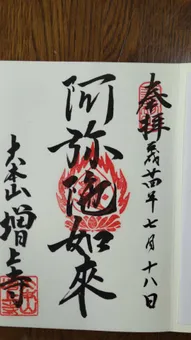 奉拝 平成廿四年七月十八日
阿弥陀如來
大本山 増上寺